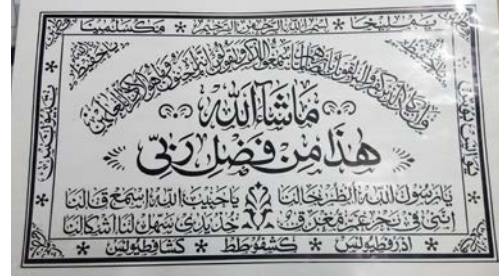 يمليخا * بسم الله الرحمن الرحيم * مكسلمينا
وان يكاد الذين كفروا ليزلقونك بابصارهم لما سمعوا الذكر ويقولون انه لمجنون وما هو الا ذكر للعالمين
يا حفيظ يا حفيظ
ماشاء الله
هٰذَا مِنْ فَضْلِ رَبِّی
يا رسول الله انظر حالنا يا حبيب الله اسمع قالنا
انني في بحر غم مغرق خذ يدي سهل لنا اشكالنا
* اذرفطيونس * كشفوطط * كشافطيونس *